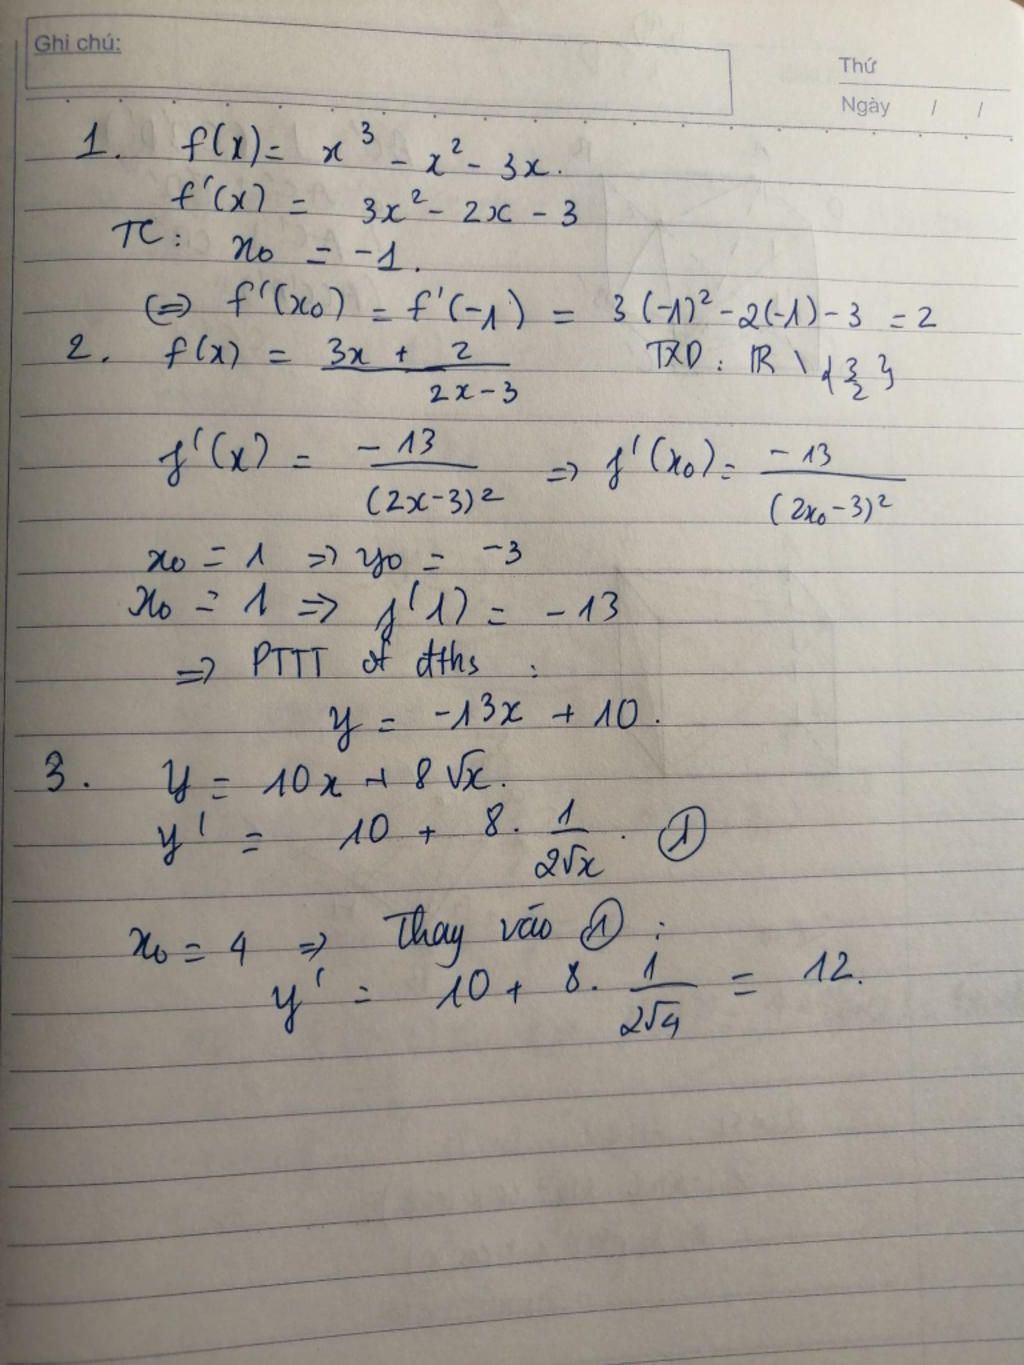 Ghi chú:
Thứ
Ngày / /
1. f(x) = x³ - x² - 3x.
f'(x) = 3x² - 2x - 3
TC: x₀ = -1.
(=) f'(x₀) = f'(-1) = 3(-1)² - 2(-1) - 3 = 2
2. f(x) = (3x + 2)/(2x - 3) TXD: ℝ \ {3/2}
f'(x) = -13/(2x-3)² => f'(x₀) = -13/(2x₀-3)²
x₀ = 1 => y₀ = -3
x₀ = 1 => f'(1) = -13
=> PTTT of đths :
y = -13x + 10.
3. y = 10x + 8√x.
y' = 10 + 8. 1/(2√x) . ①
x₀ = 4 => Thay vào ① :
y' = 10 + 8. 1/(2√4) = 12.